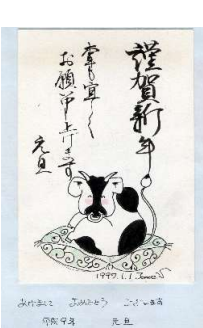 謹賀新年
も宜しく
お願い申上げます
元旦
1997.1.1
あけまして おめでとう ございます
平成9年 元旦